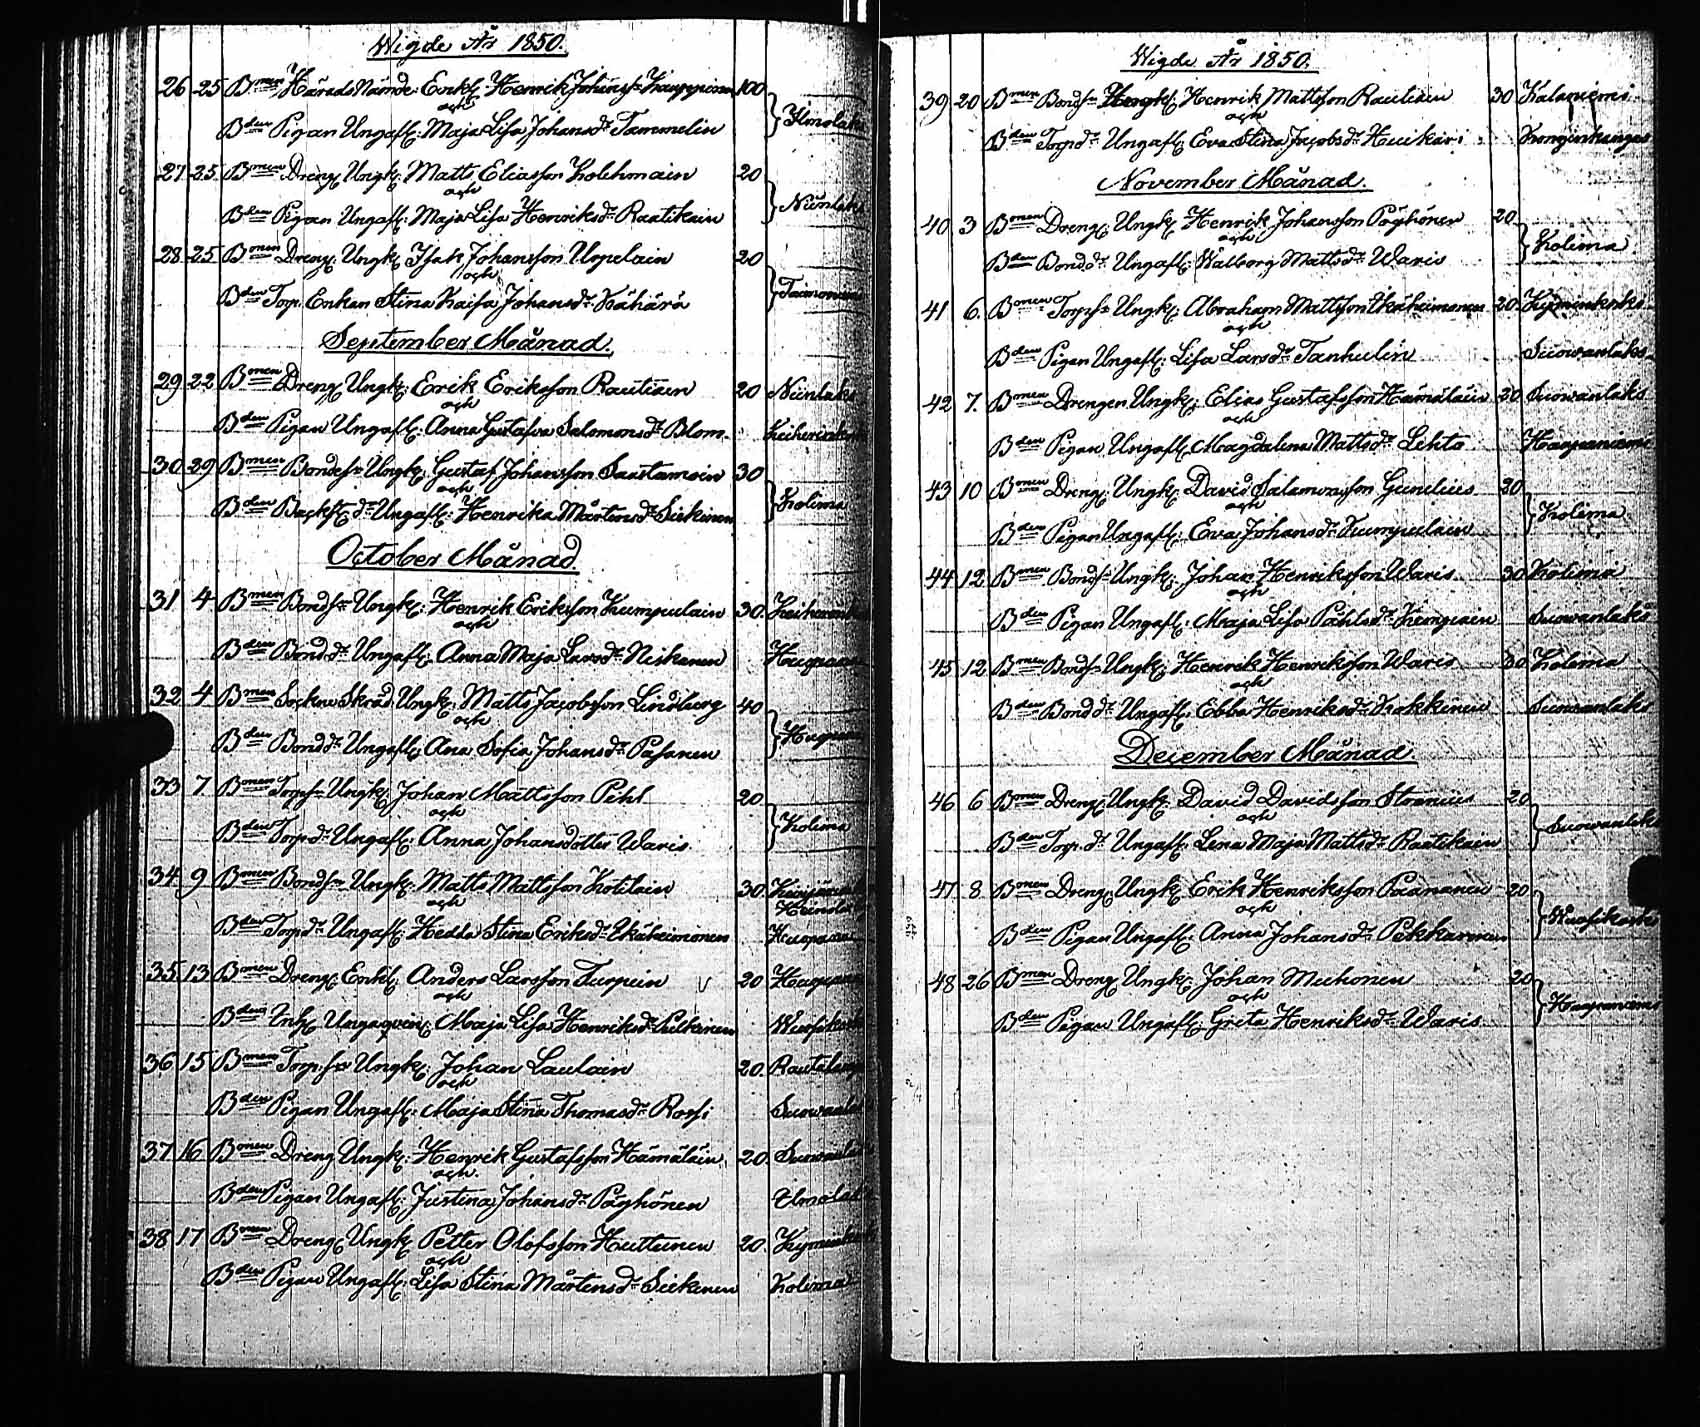 Wigde År 1850.
26 25 Bmen Härads Nämde. Enkl. Henrik Johansson Kauppinen 100
och
Bden Pigan Ungafl: Maja Lisa Johansdr Tammelin
27 25 Bmen Dreng Ungk: Matts Eliasson Kolehmain 20
och
Bden Pigan Ungafl: Maja Lisa Henriksdr Raatikain
28 25 Bmen Dreng Ungk: Isak Johansson Urpelain 20
och
Bden Torp. Enkan Stina Kaisa Johansdr Kähärä
September Månad.
29 22 Bmen Dreng Ungk: Erik Eriksson Rautiain 20
och
Bden Pigan Ungafl: Anna Gustafva Salomonsdr Blom
30 29 Bmen Bondesn Ungk: Gustaf Johansson Saastamoin 30 Kolima
och
Bden Ungafl: Henrika Mårtensdr Siekinen
October Månad
31 4 Bmen Bondsn Ungk: Henrik Eriksson Kumpulain 30.
och
Bden Bonddr Ungafl: Anna Maja Larsdr Niskanen
32 4 Bmen Socknu Skräd. Ungk: Matts Jacobsson Lindberg 40
och
Bden Bonddr Ungafl: Ana Sofia Johansdr Pasanen
33 7 Bmen Torpsn Ungk: Johan Mattsson Pehl 20 Kolima
och
Bden Torpdr Ungafl: Anna Johansdotter Waris
34 9 Bmen Bondsn Ungk: Matts Mattsson Kotilain 30
och
Bden Torpdr Ungafl: Hedda Stina Eriksdr Ukäheimonen
35 13 Bmen Dreng Enkl. Anders Larsson Turpein 20
och
Bden Enk Ungaqvin: Maja Lisa Henriksdr Pulkinen
36 15 Bmen Torp.sn Ungk: Johan Laulain 20
och
Bden Pigan Ungafl: Maja Stina Thomasdr Rossi
37 16 Bmen Dreng Ungk: Henrik Gustafsson Hämäläin 20
och
Bden Pigan Ungafl: Justina Johansdr Pöyhönen
38 17 Bmen Dreng Ungk: Petter Olofsson Huttunen 20
och
Bden Pigan Ungafl: Lisa Stina Mårtensdr Siekinen Kolima
Wigde År 1850.
39 20 Bmen Bondsn Ungk: Henrik Mattsson Rautiain 30 Kalaniemi
och
Bden Torpdr Ungafl: Eva Stina Jacobsdr Huikari Konginkangas
November Månad.
40 3 Bmen Dreng Ungk: Henrik Johansson Pöyhönen 20 Kolima
och
Bden Bonddr Ungafl: Walborg Mattsdr Waris
41 6. Bmen Torpsn Ungk: Abraham Mattsson Ukäheimonen 20
och
Bden Pigan Ungafl: Lisa Larsdr Tanhulin Suowanlaks
42 7. Bmen Drengen Ungk: Elias Gustafsson Hämäläin 20 Suowanlaks
och
Bden Pigan Ungafl: Magdalena Mattsdr Lehto Haapaniemi
43 10 Bmen Dreng Ungk: David Salamonsson Gunelius 20 Kolima
och
Bden Pigan Ungafl: Eva Johansdr Kumpulain
44 12 Bmen Bondsn Ungk: Johan Henriksson Waris 30 Kolima
och
Bden Pigan Ungafl: Maja Lisa Påhlsdr Kemppain Suowanlaks
45 12 Bmen Bondsn Ungk: Henrik Henriksson Waris 30 Kolima
och
Bden Bonddr Ungafl: Ebba Henriksdr Kokkinen Suowanlaks
December Månad.
46 6 Bmen Dreng Ungk: David Davidsson Stoenius 20 Suowanlaks
och
Bden Torp.dr Ungafl: Lena Maja Mattsdr Raatikain
47 8 Bmen Dreng Ungk: Erik Henriksson Paananen 20
och
Bden Pigan Ungafl: Anna Johansdr Pekkarinen
48 26 Bmen Dreng Ungk: Johan Muhonen 20 Haapaniemi
och
Bden Pigan Ungafl: Greta Henriksdr Waris